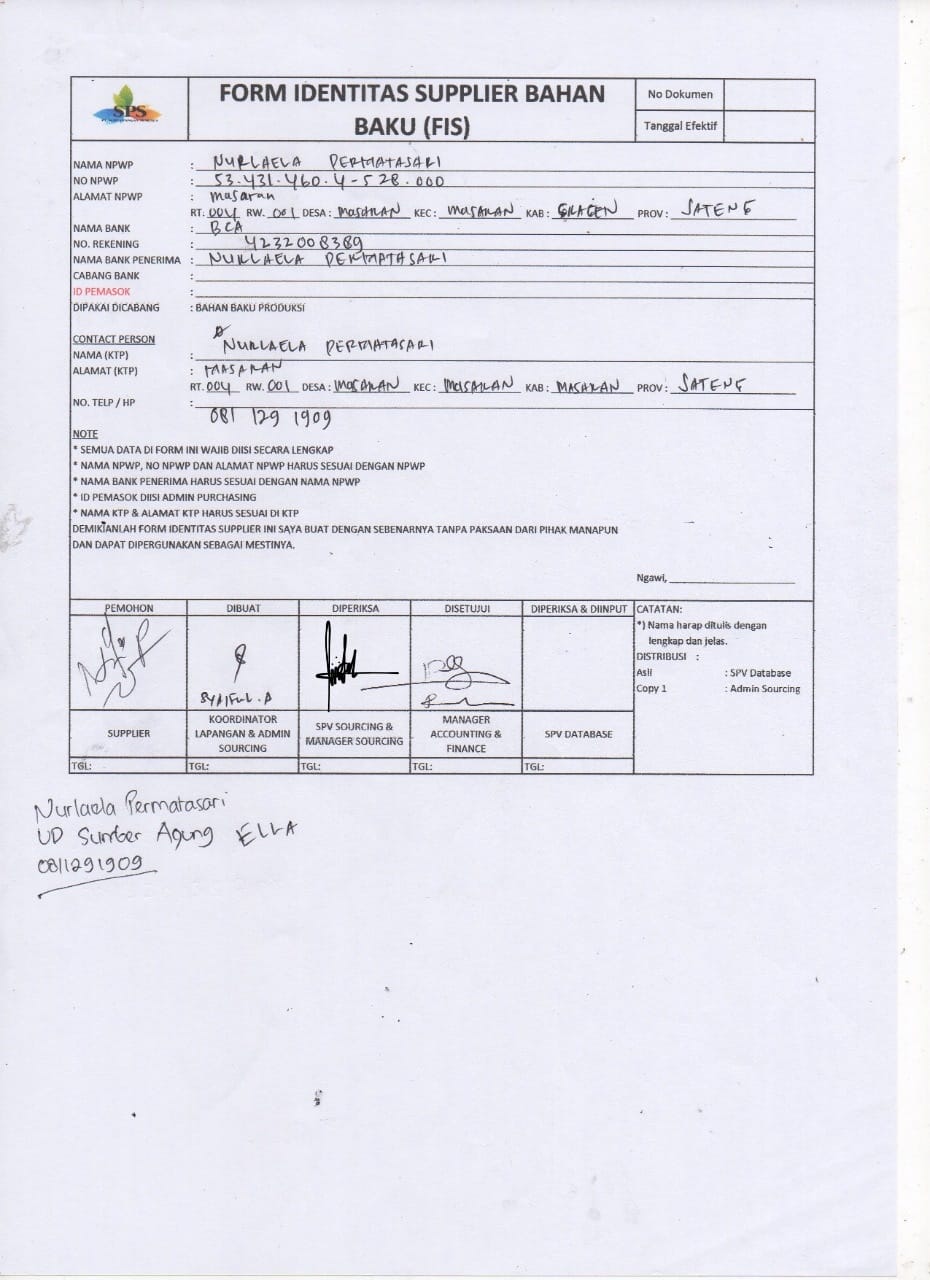 SPS
FORM IDENTITAS SUPPLIER BAHAN
BAKU (FIS)
No Dokumen
Tanggal Efektif
NAMA NPWP : NURLAELA PERMATASARI
NO NPWP : 53.431.460.4-528.000
ALAMAT NPWP : masaran
RT: 004 RW. 001 DESA: MASARAN KEC: MASARAN KAB: SRAGEN PROV: JATENG
NAMA BANK : BCA
NO. REKENING : 4232008389
NAMA BANK PENERIMA : NURLAELA PERMATASARI
CABANG BANK :
ID PEMASOK :
DIPAKAI DICABANG : BAHAN BAKU PRODUKSI
CONTACT PERSON
NAMA (KTP) : NURLAELA PERMATASARI
ALAMAT (KTP) : MASARAN
RT. 004 RW. 001 DESA: MASARAN KEC: MASARAN KAB: MASARAN PROV: JATENG
NO. TELP / HP : 081 129 1909
NOTE
* SEMUA DATA DI FORM INI WAJIB DIISI SECARA LENGKAP
* NAMA NPWP, NO NPWP DAN ALAMAT NPWP HARUS SESUAI DENGAN NPWP
* NAMA BANK PENERIMA HARUS SESUAI DENGAN NAMA NPWP
* ID PEMASOK DIISI ADMIN PURCHASING
* NAMA KTP & ALAMAT KTP HARUS SESUAI DI KTP
DEMIKIANLAH FORM IDENTITAS SUPPLIER INI SAYA BUAT DENGAN SEBENARNYA TANPA PAKSAAN DARI PIHAK MANAPUN
DAN DAPAT DIPERGUNAKAN SEBAGAI MESTINYA.
Ngawi,
PEMOHON DIBUAT DIPERIKSA DISETUJUI DIPERIKSA & DIINPUT
CATATAN:
*) Nama harap ditulis dengan
lengkap dan jelas.
DISTRIBUSI :
Asli : SPV Database
Copy 1 : Admin Sourcing
SYAIFUL.A
SUPPLIER
KOORDINATOR
LAPANGAN & ADMIN
SOURCING
SPV SOURCING &
MANAGER SOURCING
MANAGER
ACCOUNTING &
FINANCE
SPV DATABASE
TGL: TGL: TGL: TGL: TGL:
Nurlaela Permatasari
UD Sumber Agung ELLA
0811291909